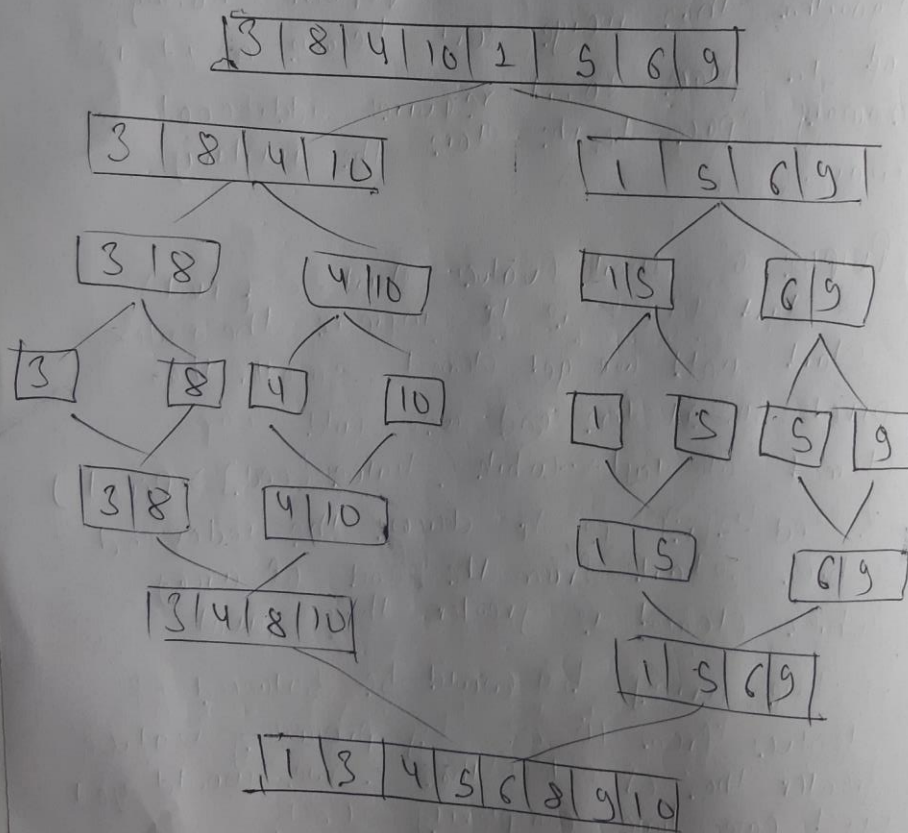 3 | 8 | 4 | 10 | 1 | 5 | 6 | 9
3 | 8 | 4 | 10
1 | 5 | 6 | 9
3 | 8
4 | 10
1 | 5
6 | 9
3
8
4
10
1
5
5
9
3 | 8
4 | 10
1 | 5
6 | 9
3 | 4 | 8 | 10
1 | 5 | 6 | 9
1 | 3 | 4 | 5 | 6 | 8 | 9 | 10